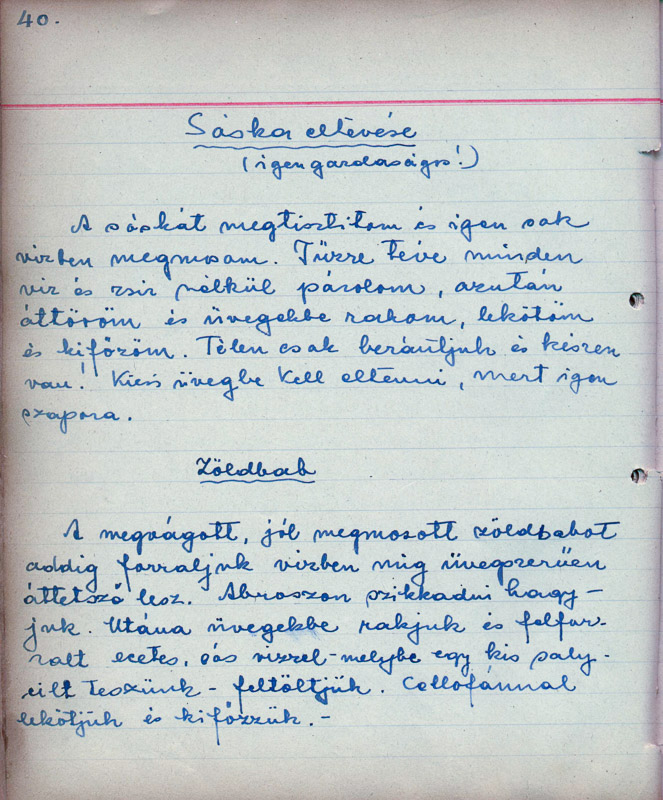 40.
Sáska eltevése
(igen gazdaságos!)
A sáskát megtisztitom és igen sok
vizben megmosom. Tüzre téve minden
viz és zsir nélkül párolom, azután
áttöröm és üvegekbe rakom, lekötöm
és kifőzöm. Télen csak berántjuk és készen
van! Kicsi üvegbe kell eltenni, mert igen
szapora.
Zöldbab
A megvágott, jól megmosott zöldbabot
addig forraljuk vizben mig üvegszerüen
áttetsző lesz. Abroszon szikkadni hagy-
juk. Utána üvegekbe rakjuk és felfor-
ralt ecetes, sós vizzel - melybe egy kis saly-
cilt teszünk - feltöltjük. Cellofánnal
lekötjük és kifőzzük.-